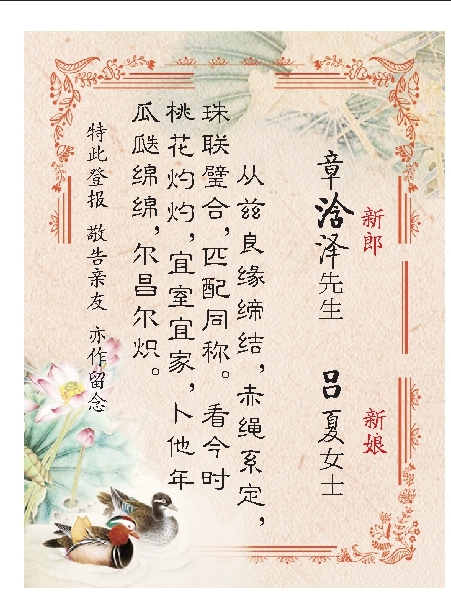 新郎
章浛泽先生
新娘
吕夏女士
从兹良缘缔结，赤绳系定，
珠联璧合，匹配同称。看今时
桃花灼灼，宜室宜家，卜他年
瓜瓞绵绵，尔昌尔炽。
特此登报 敬告亲友 亦作留念